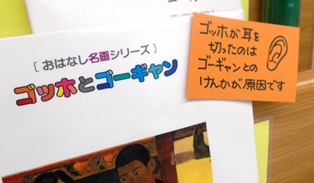 [おはなし名画シリーズ]
ゴッホとゴーギャン
ゴッホが耳を
切ったのは
ゴーギャンとの
けんかが原因です